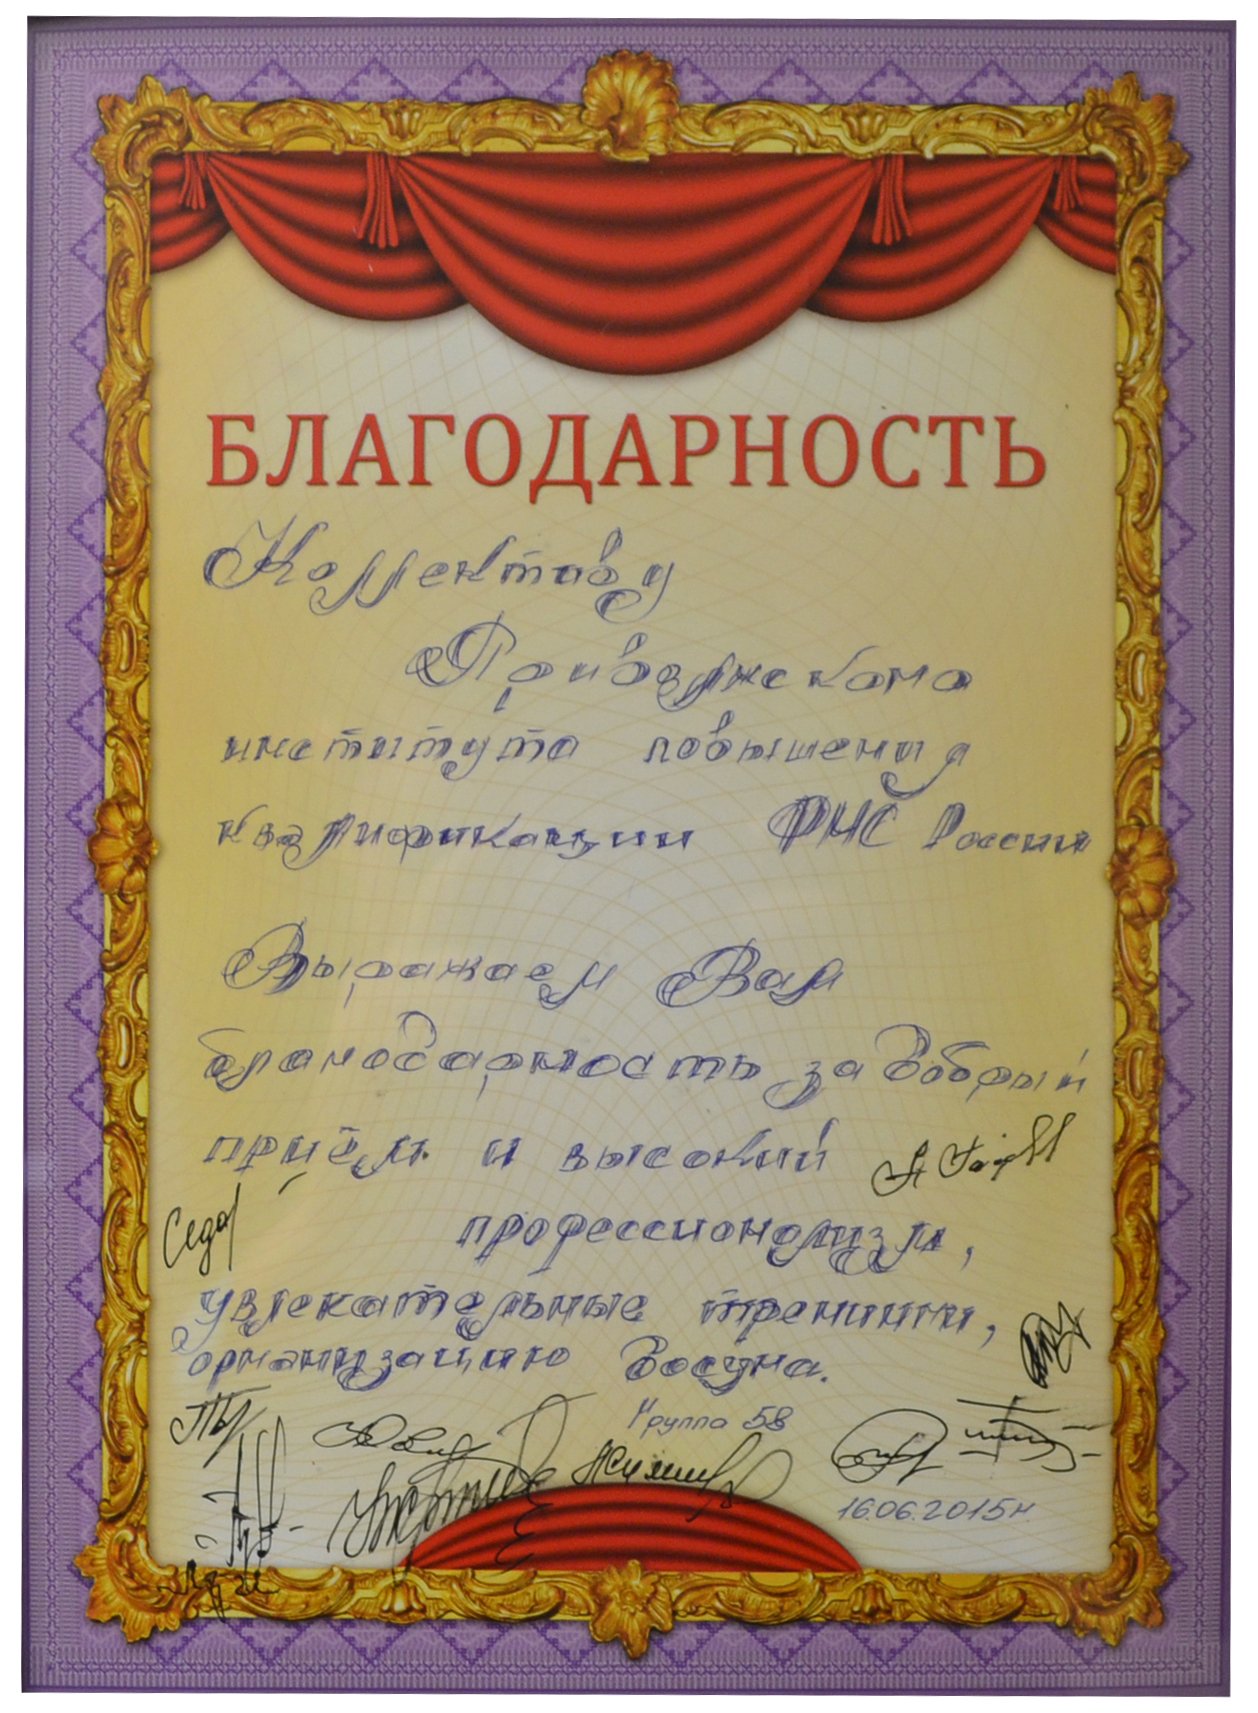 БЛАГОДАРНОСТЬ
Коллективу
Приволжского
института повышения
квалификации ФНС России
Выражаем Вам
благодарность за добрый
приём и высокий
профессионализм,
увлекательные тренинги,
организацию досуга.
Группа 58
16.06.2015г.